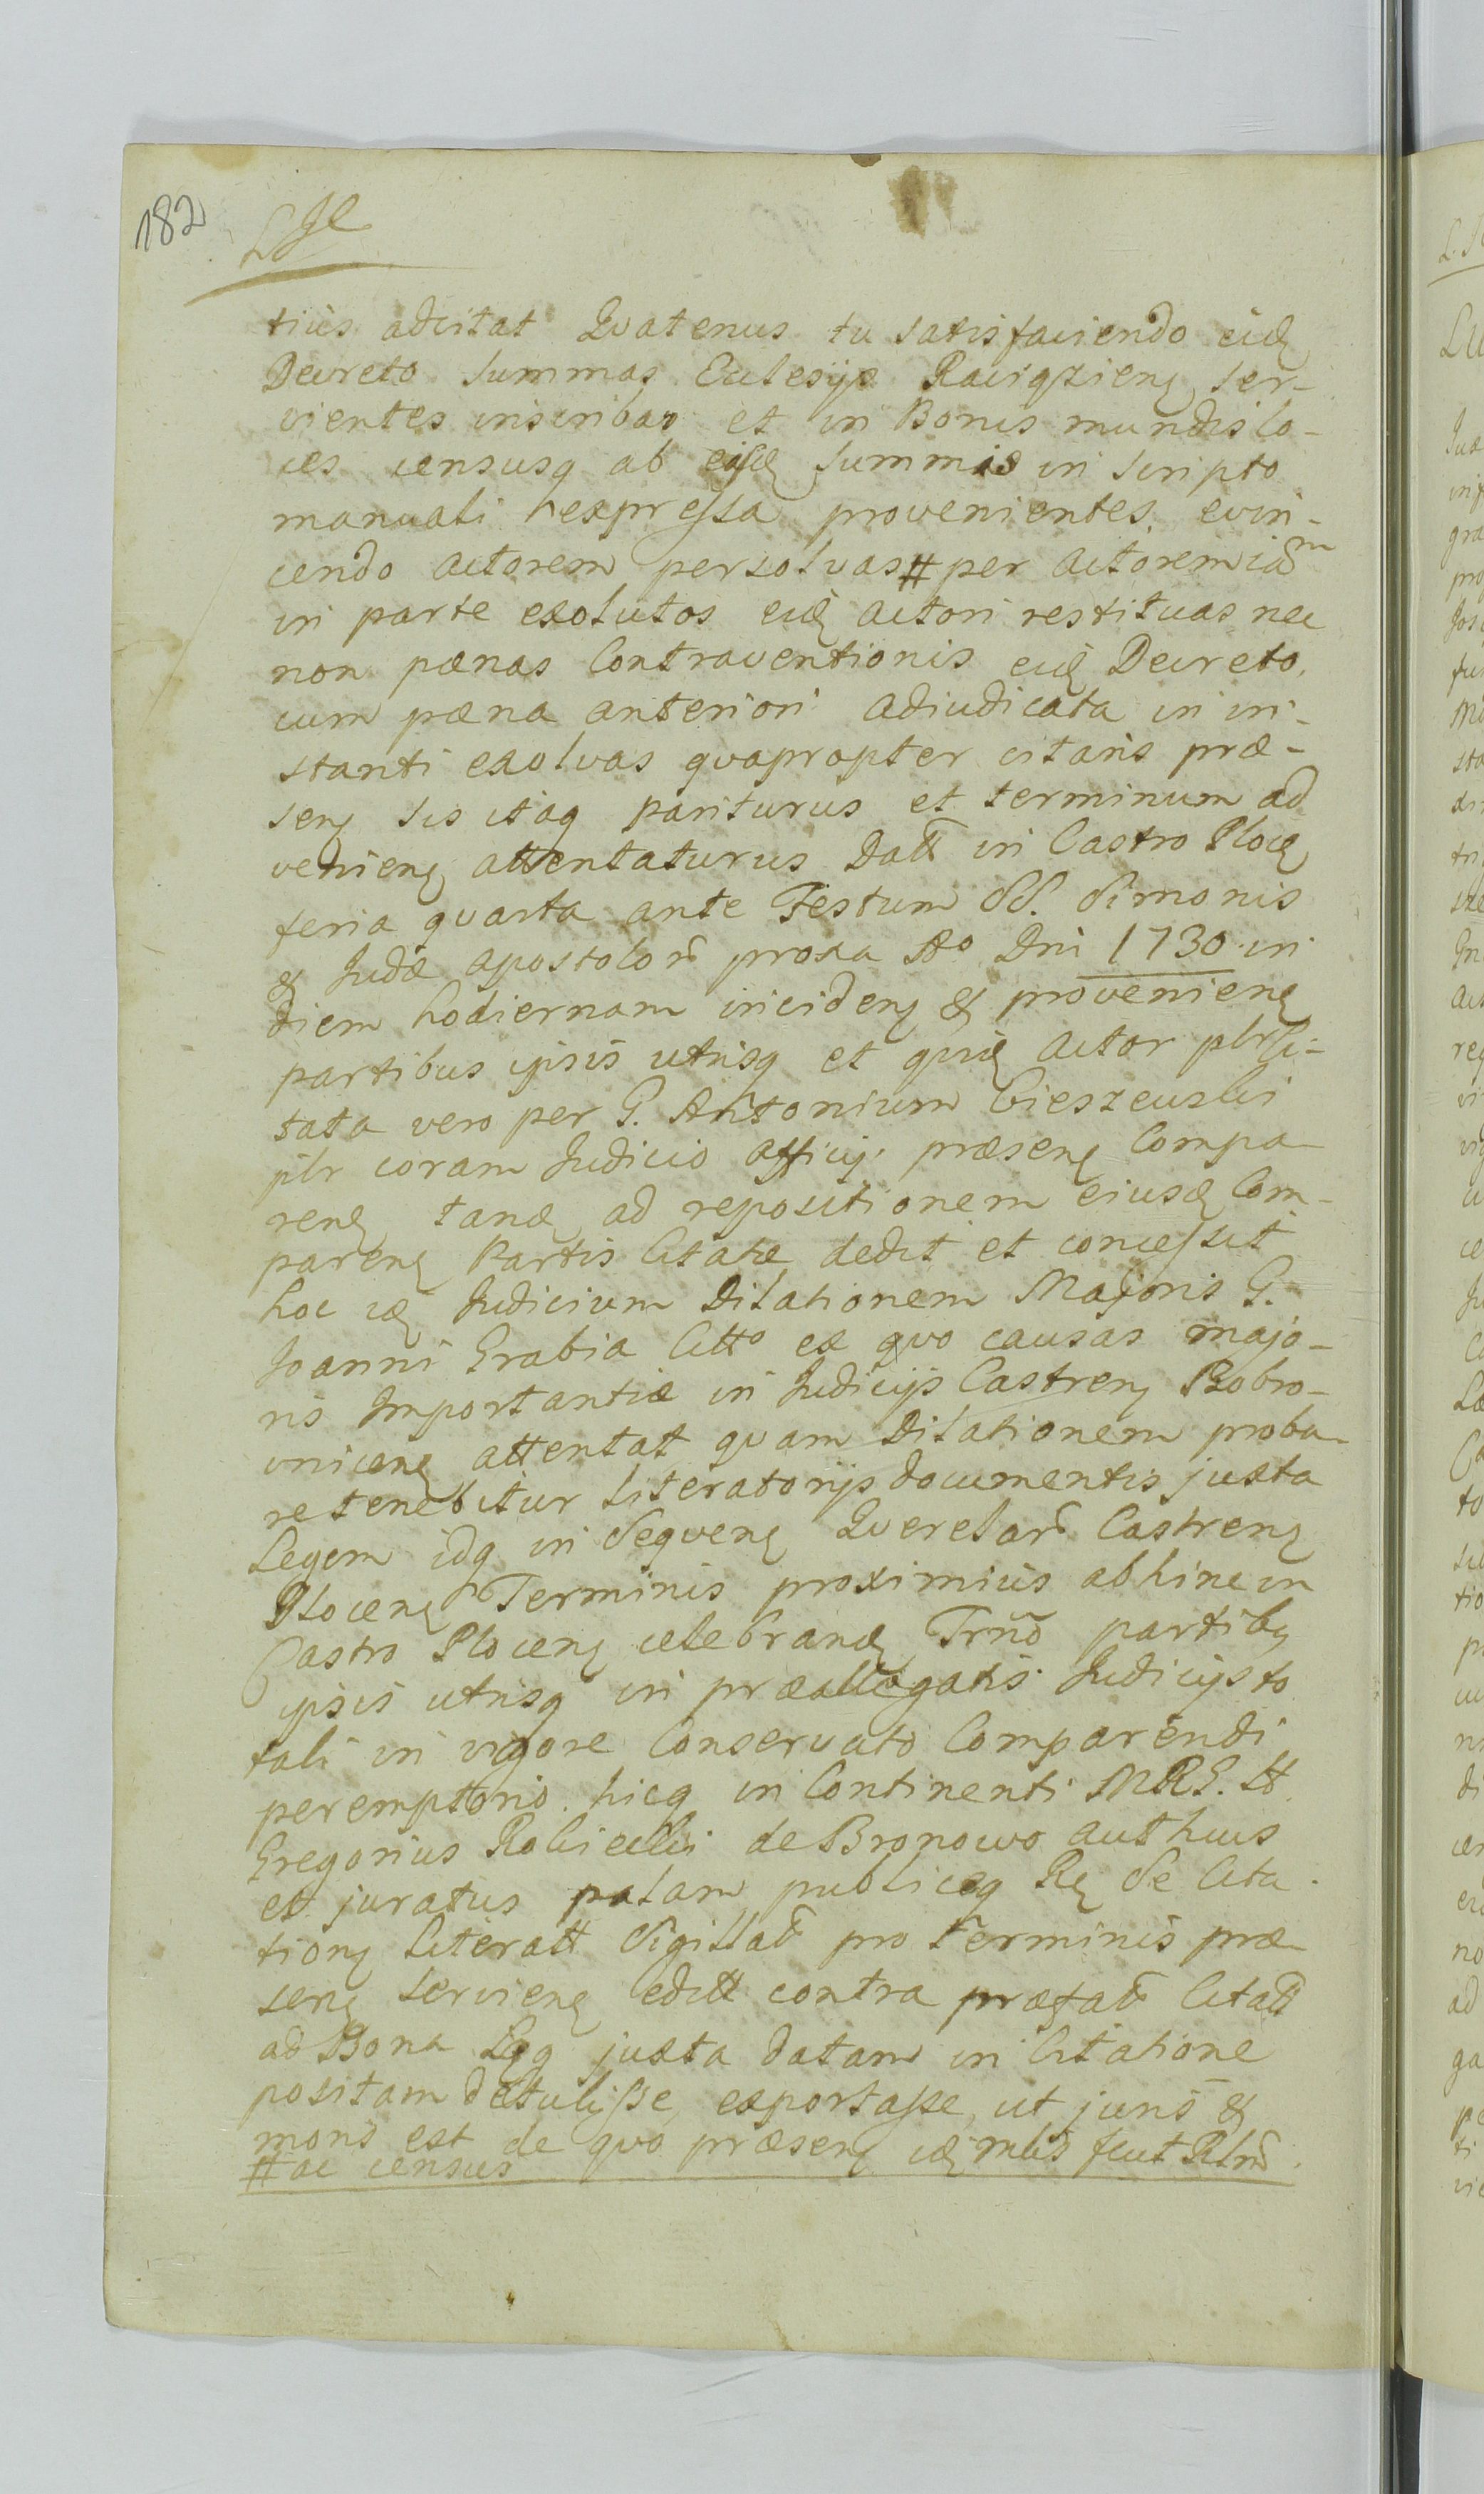 182
tius adcitat Qvatenus tu satisfaciendo eid
Decreto Summas Ecclesijs Raciązienę ser-
vientes inscribas et in Bonis mundis lo-
ces censusq ab eisd Summis in Scripto
manuali expressa provenientes evin-
cendo actorem persolvas # per actorem iam
in parte exolutos eid actori restituas nec
non pænas Contraventionis eid Decreto
cum pæna anteriori adiudicata in in-
stanti exolvas qvapropter citaris præ-
senę sis itaq pariturus et terminum ad
venienę attentaturus Datt in Castro Ploc
feria qvarta ante Festum SS. Simonis
& Judæ apostolorū proxa Ao Dni 1730 in
diem hodiernam incidenę & provenienę
partibus ipsis utrisq et qvid actor plr Ci-
tata vero per G. Antonium Cieszewski
plr coram Judicio officij præsenę Compa
renę tand ad repositionem eiusd Com-
parenę Partis Citatæ dedit et concessit
hoc id Judicium Dilationem Majoris G.
Joanni Grabia Citto ex qvo causas majo-
ris Importantiæ in Judicijs Castrenę Bobro-
wnicenę attentat qvam Dilationem proba-
re tenebitur Literatorijs documentis juxta
Legem idq in Seqvenę Qverelarū Castrenę
Plocenę Terminis proximius abhinc in
Castro Plocenę celebrand Trño partibq
ipsis utrisq in præallegatis Judicijs to
tali in vigore Conservato Comparendi
peremptorio. hicq in Continenti MRG. tt
Gregorius Rokicki de Bronowo authus
et juratus palam publiceq Re Se Cita-
tionę Literatt Sigillat pro Terminis præ
senę servienę editt contra præfat Citatt
ad Bona Lgg juxta datam in Citatione
positam detulisse, exportasse, ut juris &
moris est de qvo præsenę id mlis fecit Relnē.
# ac census